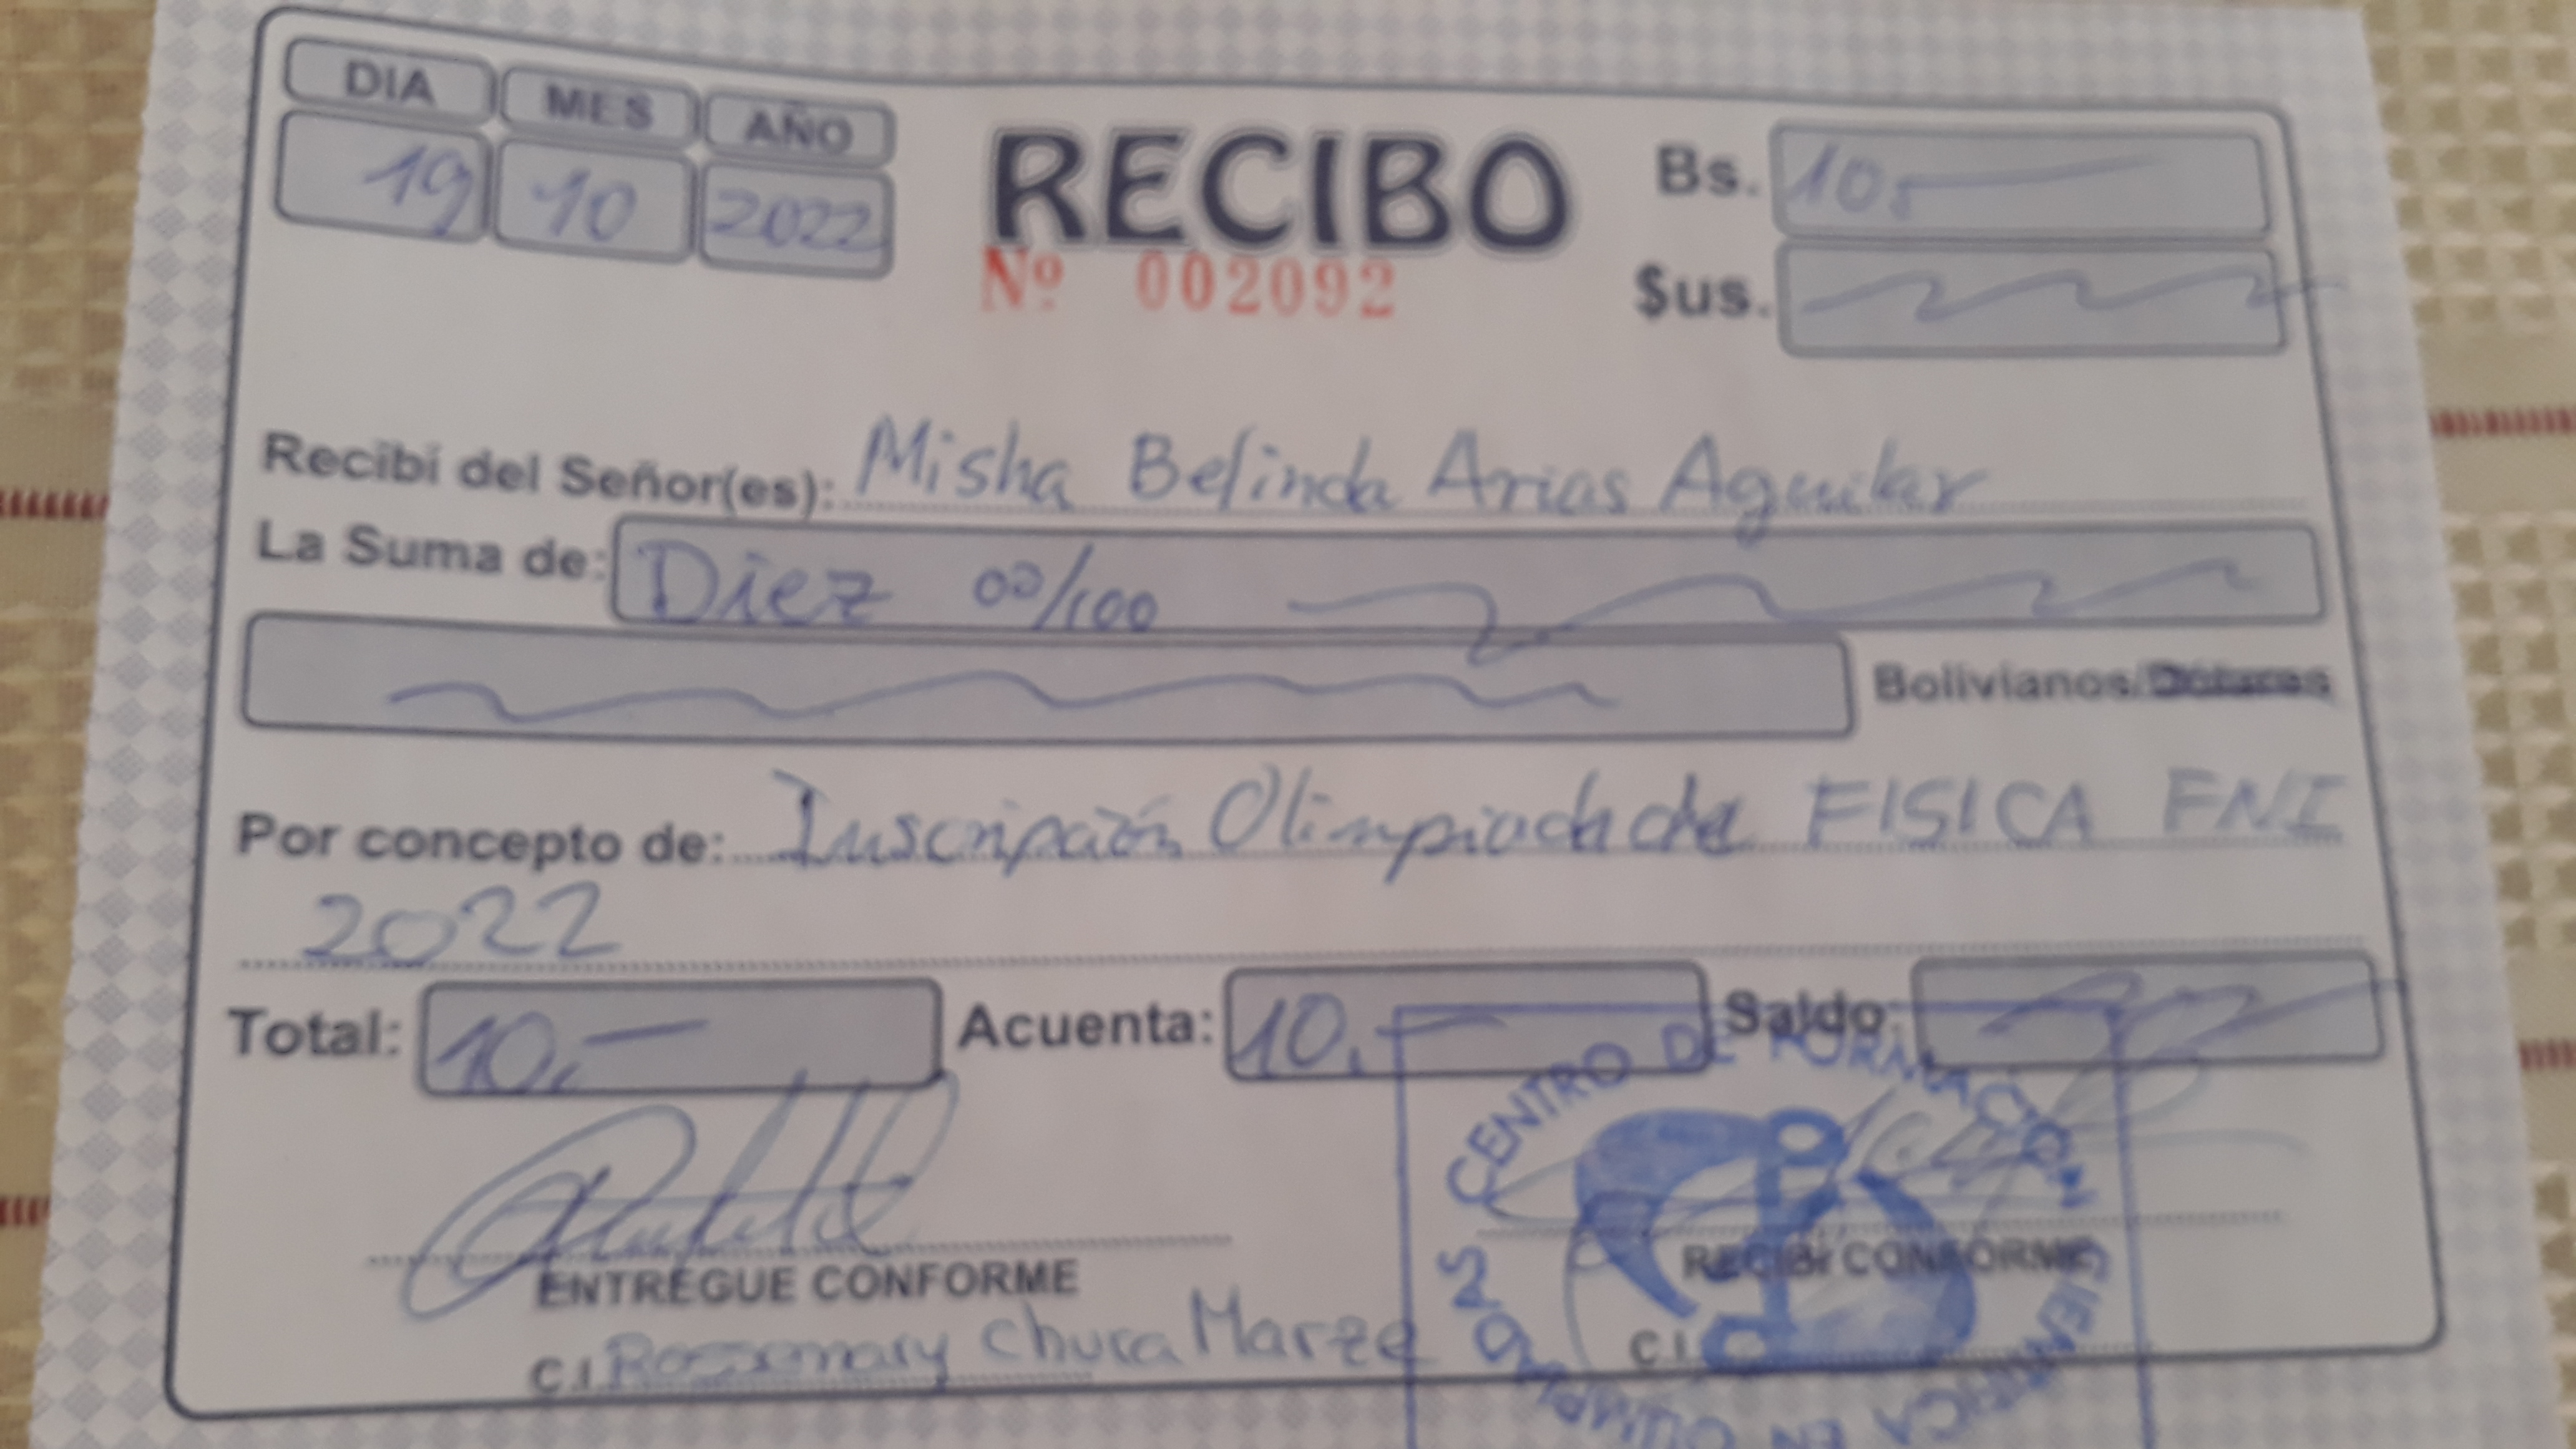 DIA MES AÑO
19 10 2022
RECIBO
Nº 002092
Bs. 10,-
$us.
Recibí del Señor(es): Misha Belinda Arias Aguilar
La Suma de: Diez 00/100
Bolivianos/Dólares
Por concepto de: Inscripción Olimpiada FISICA FNI
2022
Total: 10,- Acuenta: 10,- Saldo:
ENTREGUE CONFORME
C.I. Rossemary Chura Marze
RECIBI CONFORME
C.I.
CENTRO DE